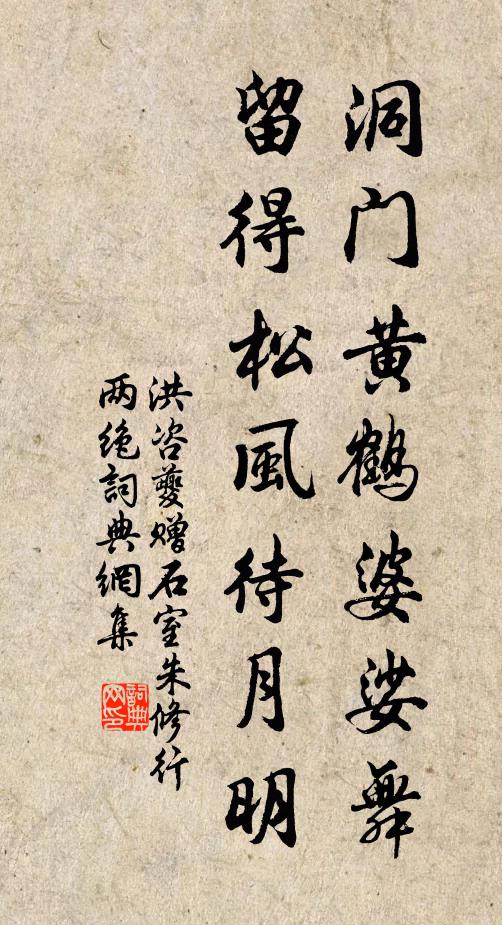 洞门黄鹤婆娑舞
留得松風待月明
洪咨夔赠石室朱修行
两绝詞典網集
詞典
网印